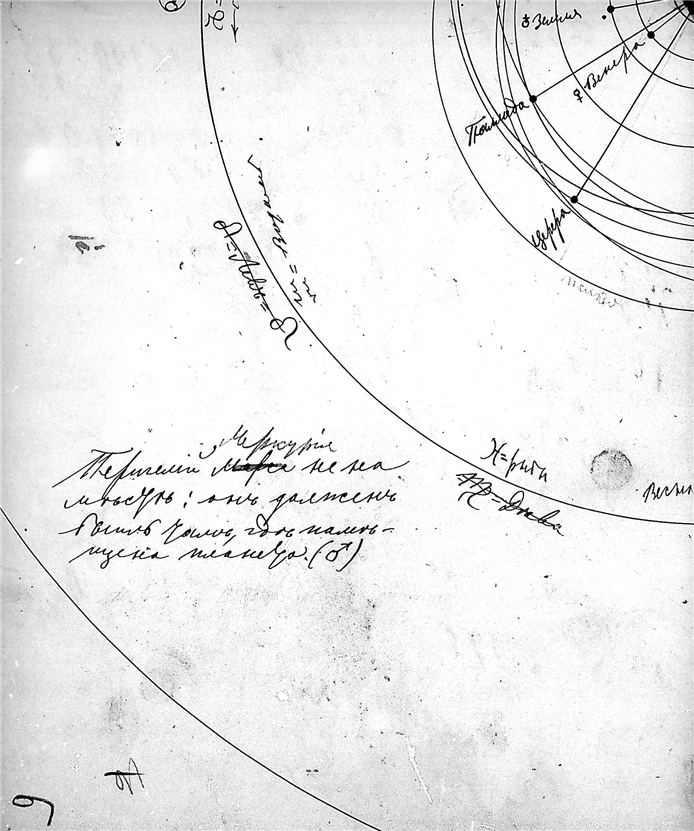 ♁ Земля
♀ Венера
Паллада
Церера
♌=Левъ=♌
♒=Водолей
♓=рыбы
♍=Дѣва
Весы
Меркурія
Перигелій Марса не на
мѣстѣ: онъ долженъ
быть тамъ, гдѣ помѣ-
щена планета. (♂)
6